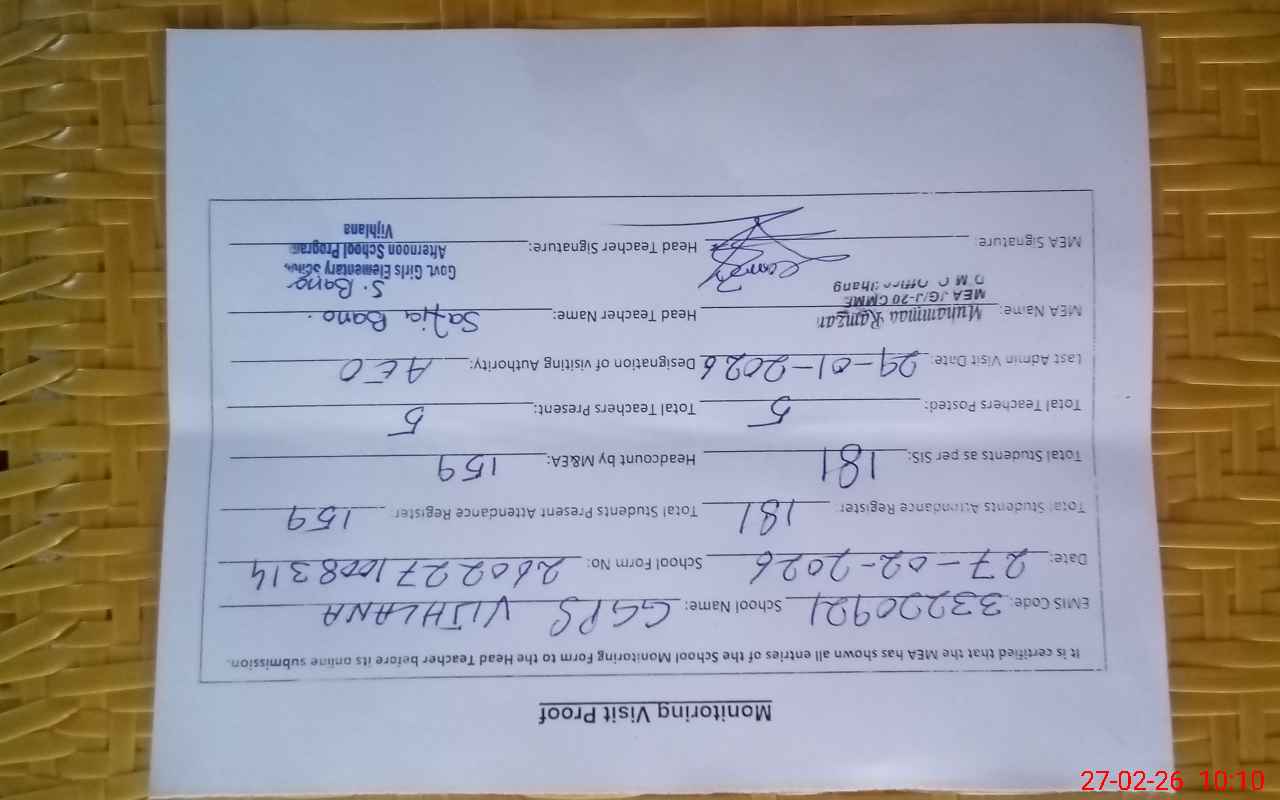 Monitoring Visit Proof
It is certified that the MEA has shown all entries of the School Monitoring Form to the Head Teacher before its online submission.
EMIS Code: 33220921 School Name: GGPS VIJHLANA
Date: 27-02-2026 School Form No: 2602271008314
Total Students Attendance Register 181 Total Students Present Attendance Register 159
Total Students as per SIS: 181 Headcount by M&EA: 159
Total Teachers Posted: 5 Total Teachers Present: 5
Last Admin Visit Date: 29-01-2026 Designation of visiting Authority: AEO
MEA Name: Muhammad Ramzan Head Teacher Name: Sazia Bano.
MEA /G/J-20 CMMF
D M O Office Jhang
S. Bano
Govt. Girls Elementary School
MEA Signature: Head Teacher Signature: Afternoon School Program
Vijhlana
27-02-26 10:10